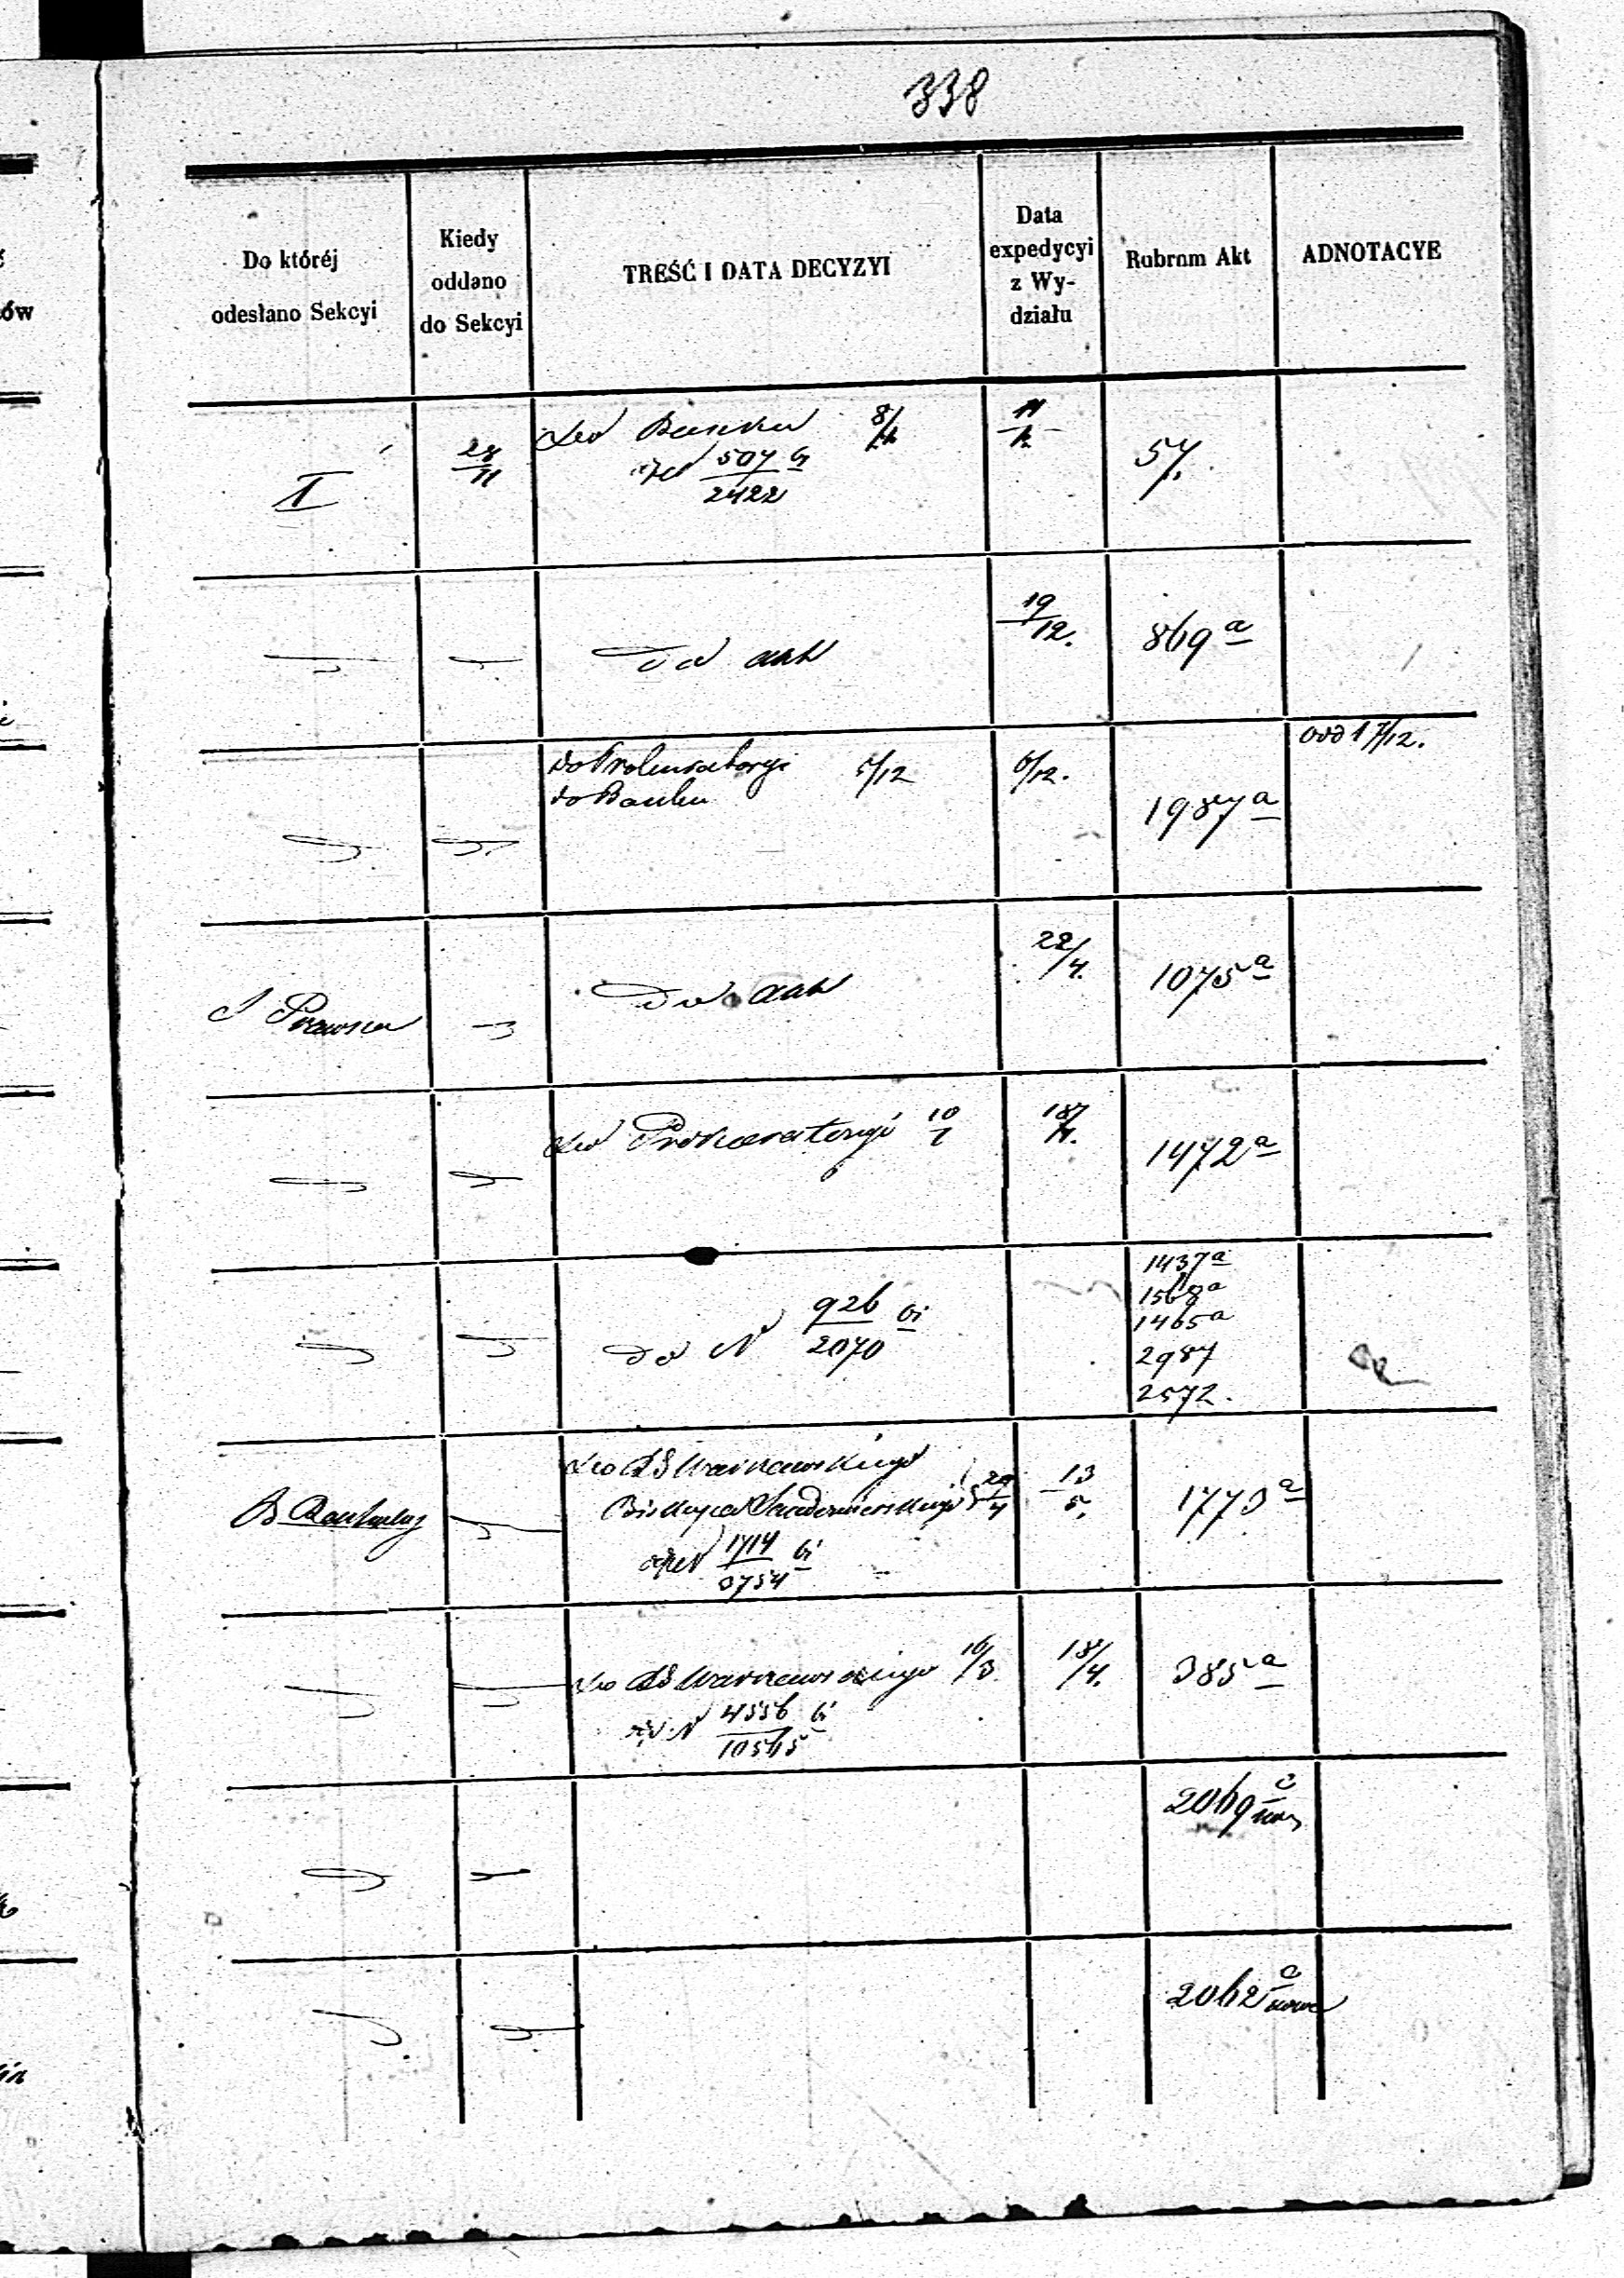 338
Do któréj
odesłano Sekcyi
Kiedy
oddano
do Sekcyi
TREŚĆ I DATA DECYZYI
Data
expedycyi
z Wy-
działu
Rubrum Akt
ADNOTACYE
I
28/11
Do Banku 8/12
507
2422
57.
do akt
19/12.
869 a
do Prokuratoryi 5/12
do Banku
6/12.
1987 a
odd 17/12.
I Prawna
do akt
22/4.
1075 a
do Prokuratoryi 10/1
1472 a
do N 926/2070
1437 a
1568 a
1465 a
2987
2572.
do Warszawskiego
Biskupa Sandomierskiego
1714
3754
13/5.
1773 a
do Warszawskiego 16/3.
N 4556
10565
18/4.
385 a
2069
2062